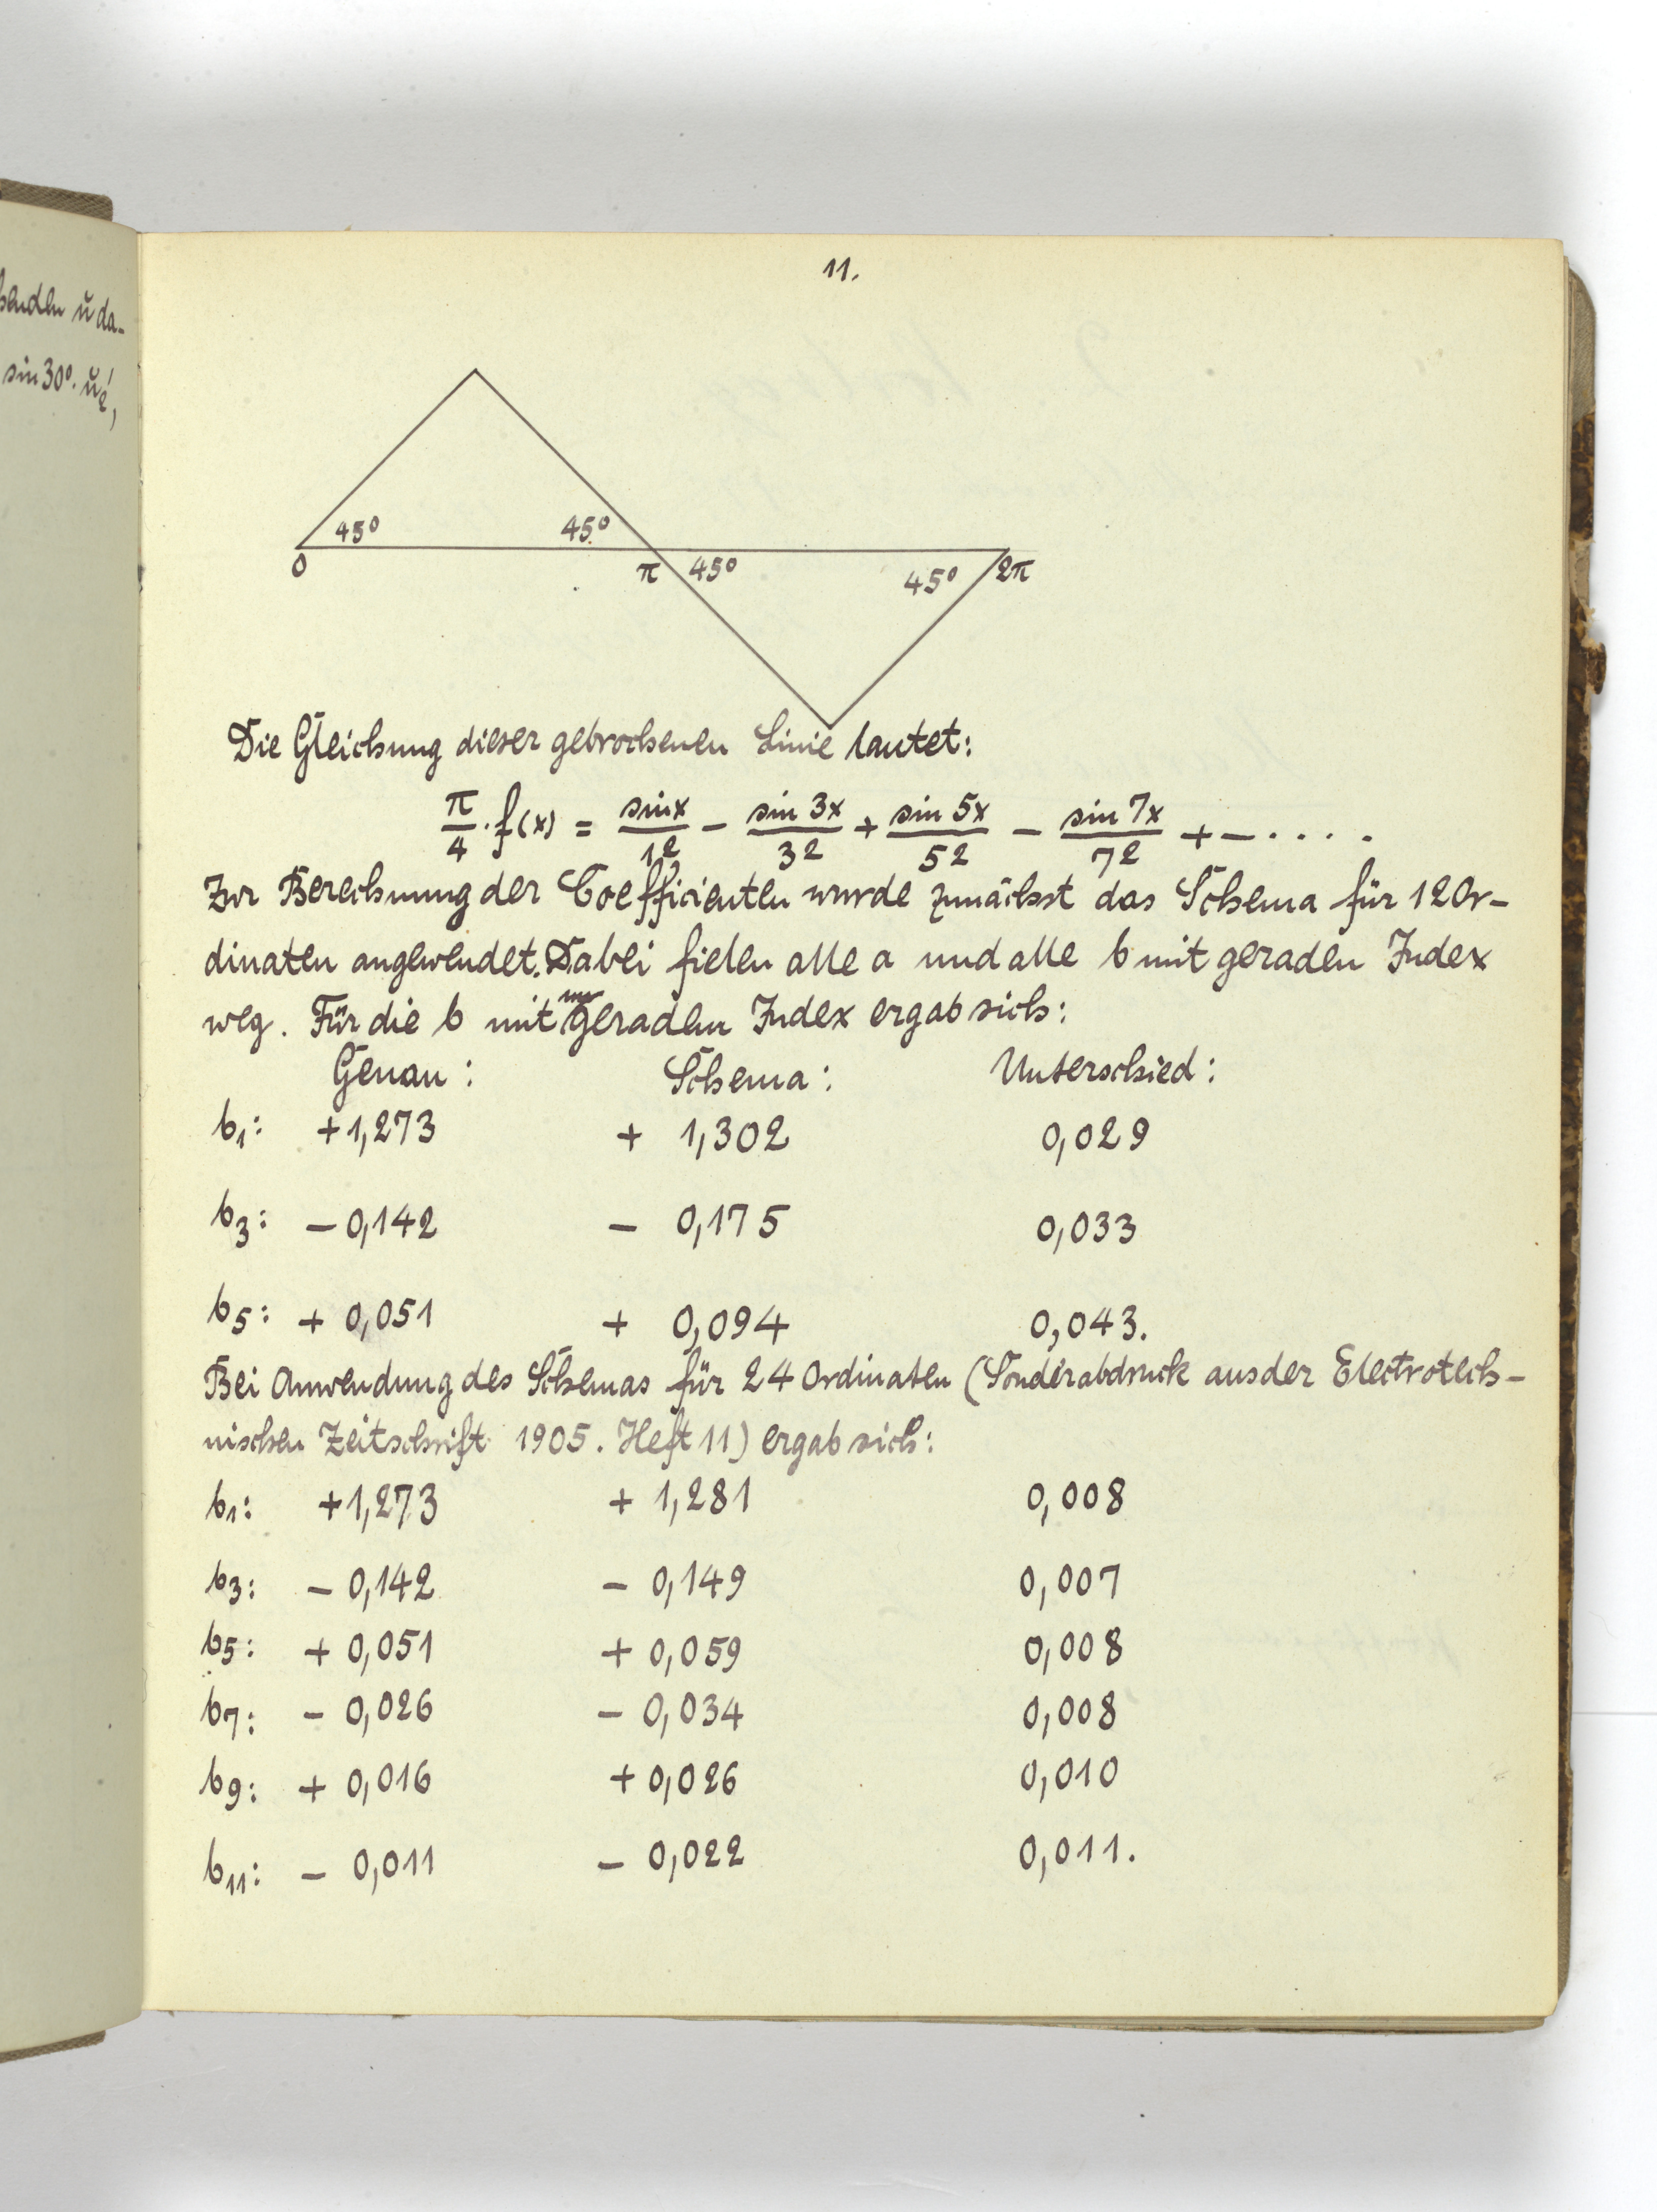 henden u̇ da-
sin 30°.
11.
45° 45°
0 π 45° 45° 2π
Die Gleichung dieser gebrochenen Linie lautet:
π/4 · f(x) = sin x/1² − sin 3x/3² + sin 5x/5² − sin 7x/7² + − . . . .
Zur Berechnung der Coefficienten wurde zunächst das Schema für 12 Or-
dinaten angewendet. Dabei fielen alle a und alle b mit geraden Index
weg. Für die b mit ungeraden Index ergab sich:
Genau: Schema: Unterschied:
b₁: +1,273 + 1,302 0,029
b₃: − 0,142 − 0,175 0,033
b₅: + 0,051 + 0,094 0,043.
Bei Anwendung des Schemas für 24 Ordinaten (Sonderabdruck aus der Electrotech-
nischen Zeitschrift 1905. Heft 11) ergab sich:
b₁: +1,273 + 1,281 0,008
b₃: − 0,142 − 0,149 0,007
b₅: + 0,051 + 0,059 0,008
b₇: − 0,026 − 0,034 0,008
b₉: + 0,016 + 0,026 0,010
b₁₁: − 0,011 − 0,022 0,011.